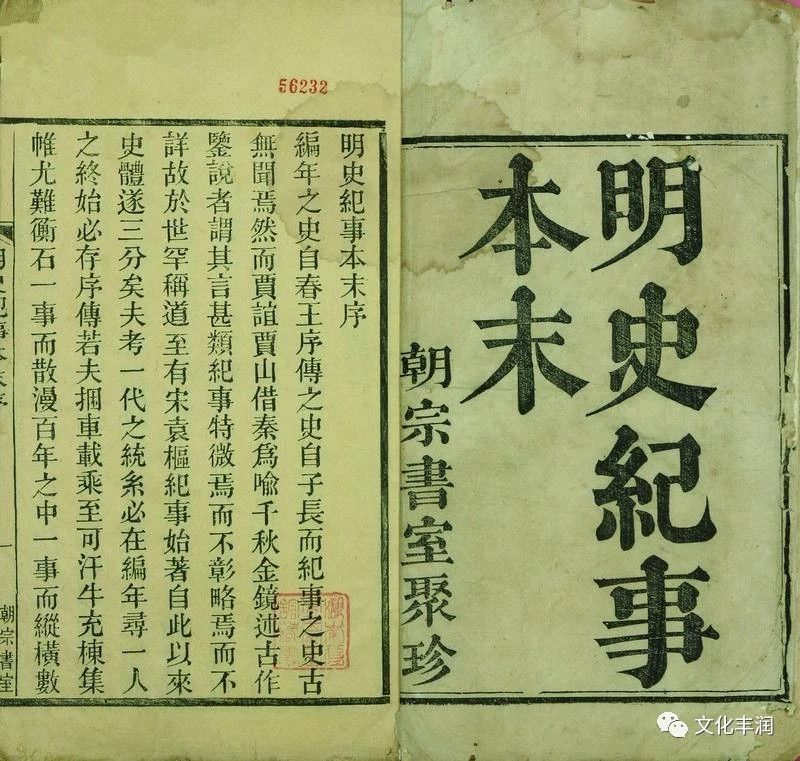 明史紀事
本末
朝宗書室聚珍
56232
明史紀事本末序
編年之史自春王序傳之史自子長而紀事之史古
無聞焉然而賈誼賈山借秦爲喻千秋金鏡述古作
鑒說者謂其言甚類紀事特微焉而不彰略焉而不
詳故於世罕稱道至有宋袁樞紀事始著自此以來
史體遂三分矣夫考一代之統系必在編年尋一人
之終始必存序傳若夫捆車載乘至可汗牛充棟集
帷尤難衡石一事而散漫百年之中一事而縱橫數
一
朝宗書室
文化丰润